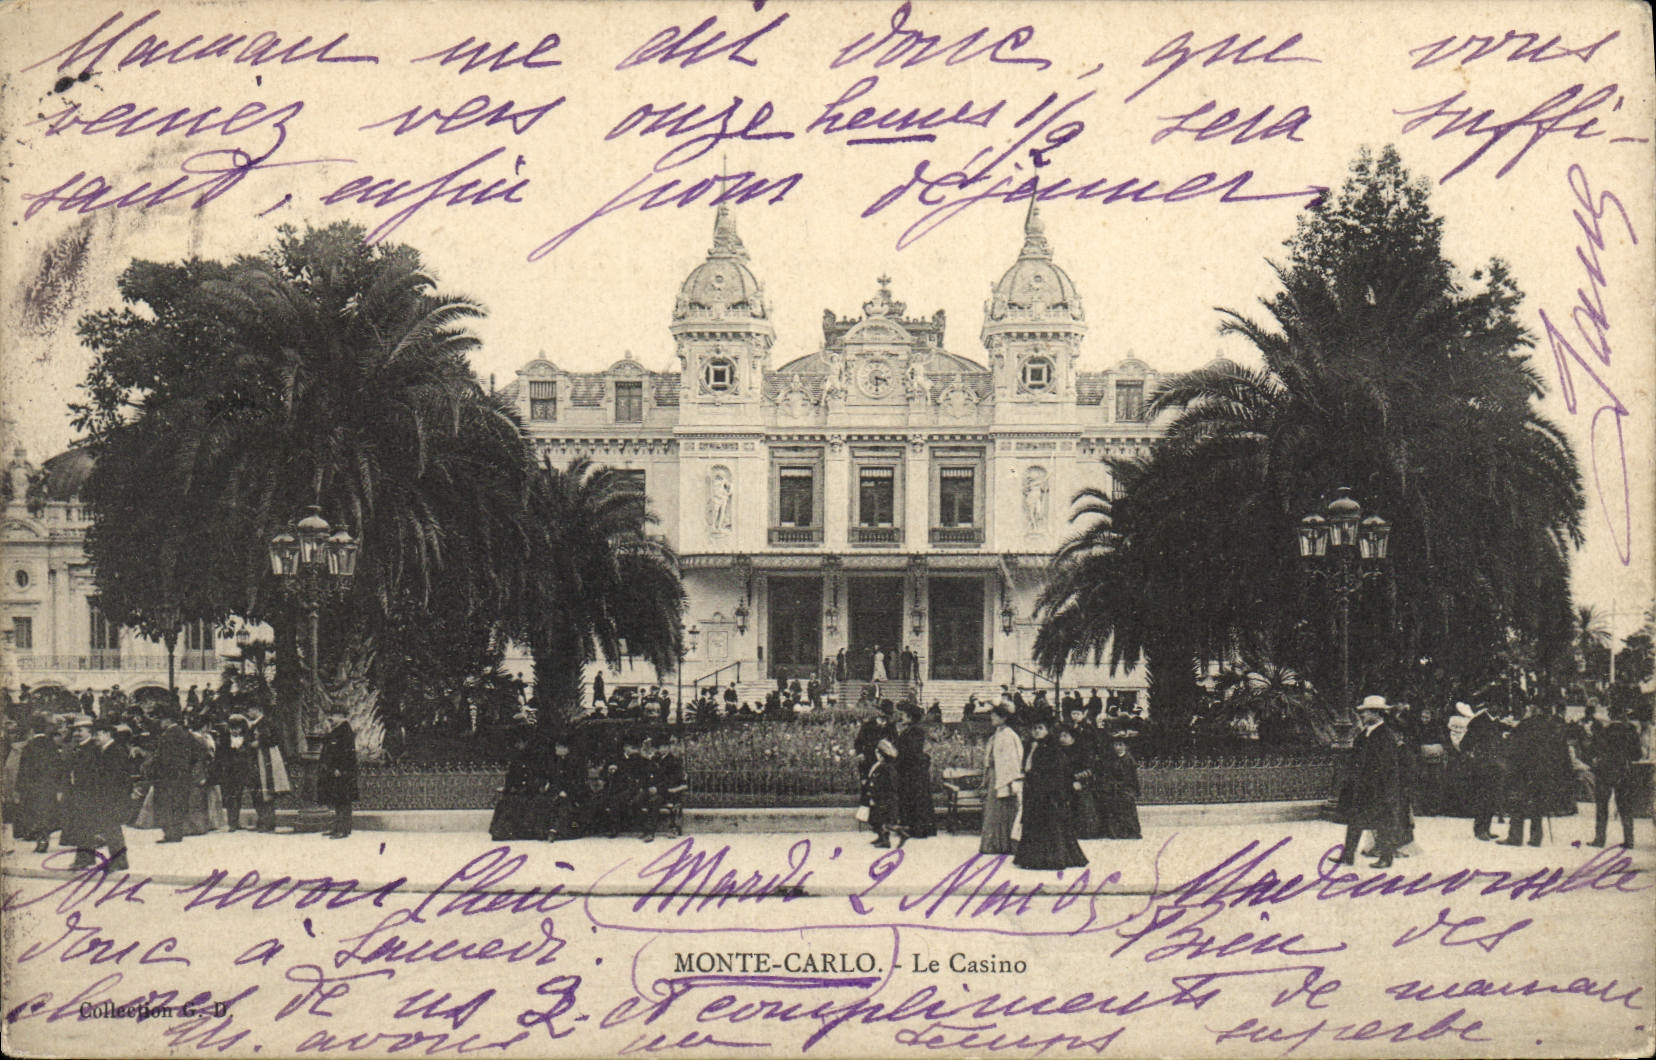 Maman me dit donc, que vous
veniez vers onze heures 1/2 sera suffi-
sant, enfin pour déjeuner.
Au revoir Mardi 2 Mai 05 Mademoiselle
donc à Samedi. Bien des
MONTE-CARLO. - Le Casino
choses de ns 2. et compliments de maman
Collection G. D.
Ns. avons un temps superbe.